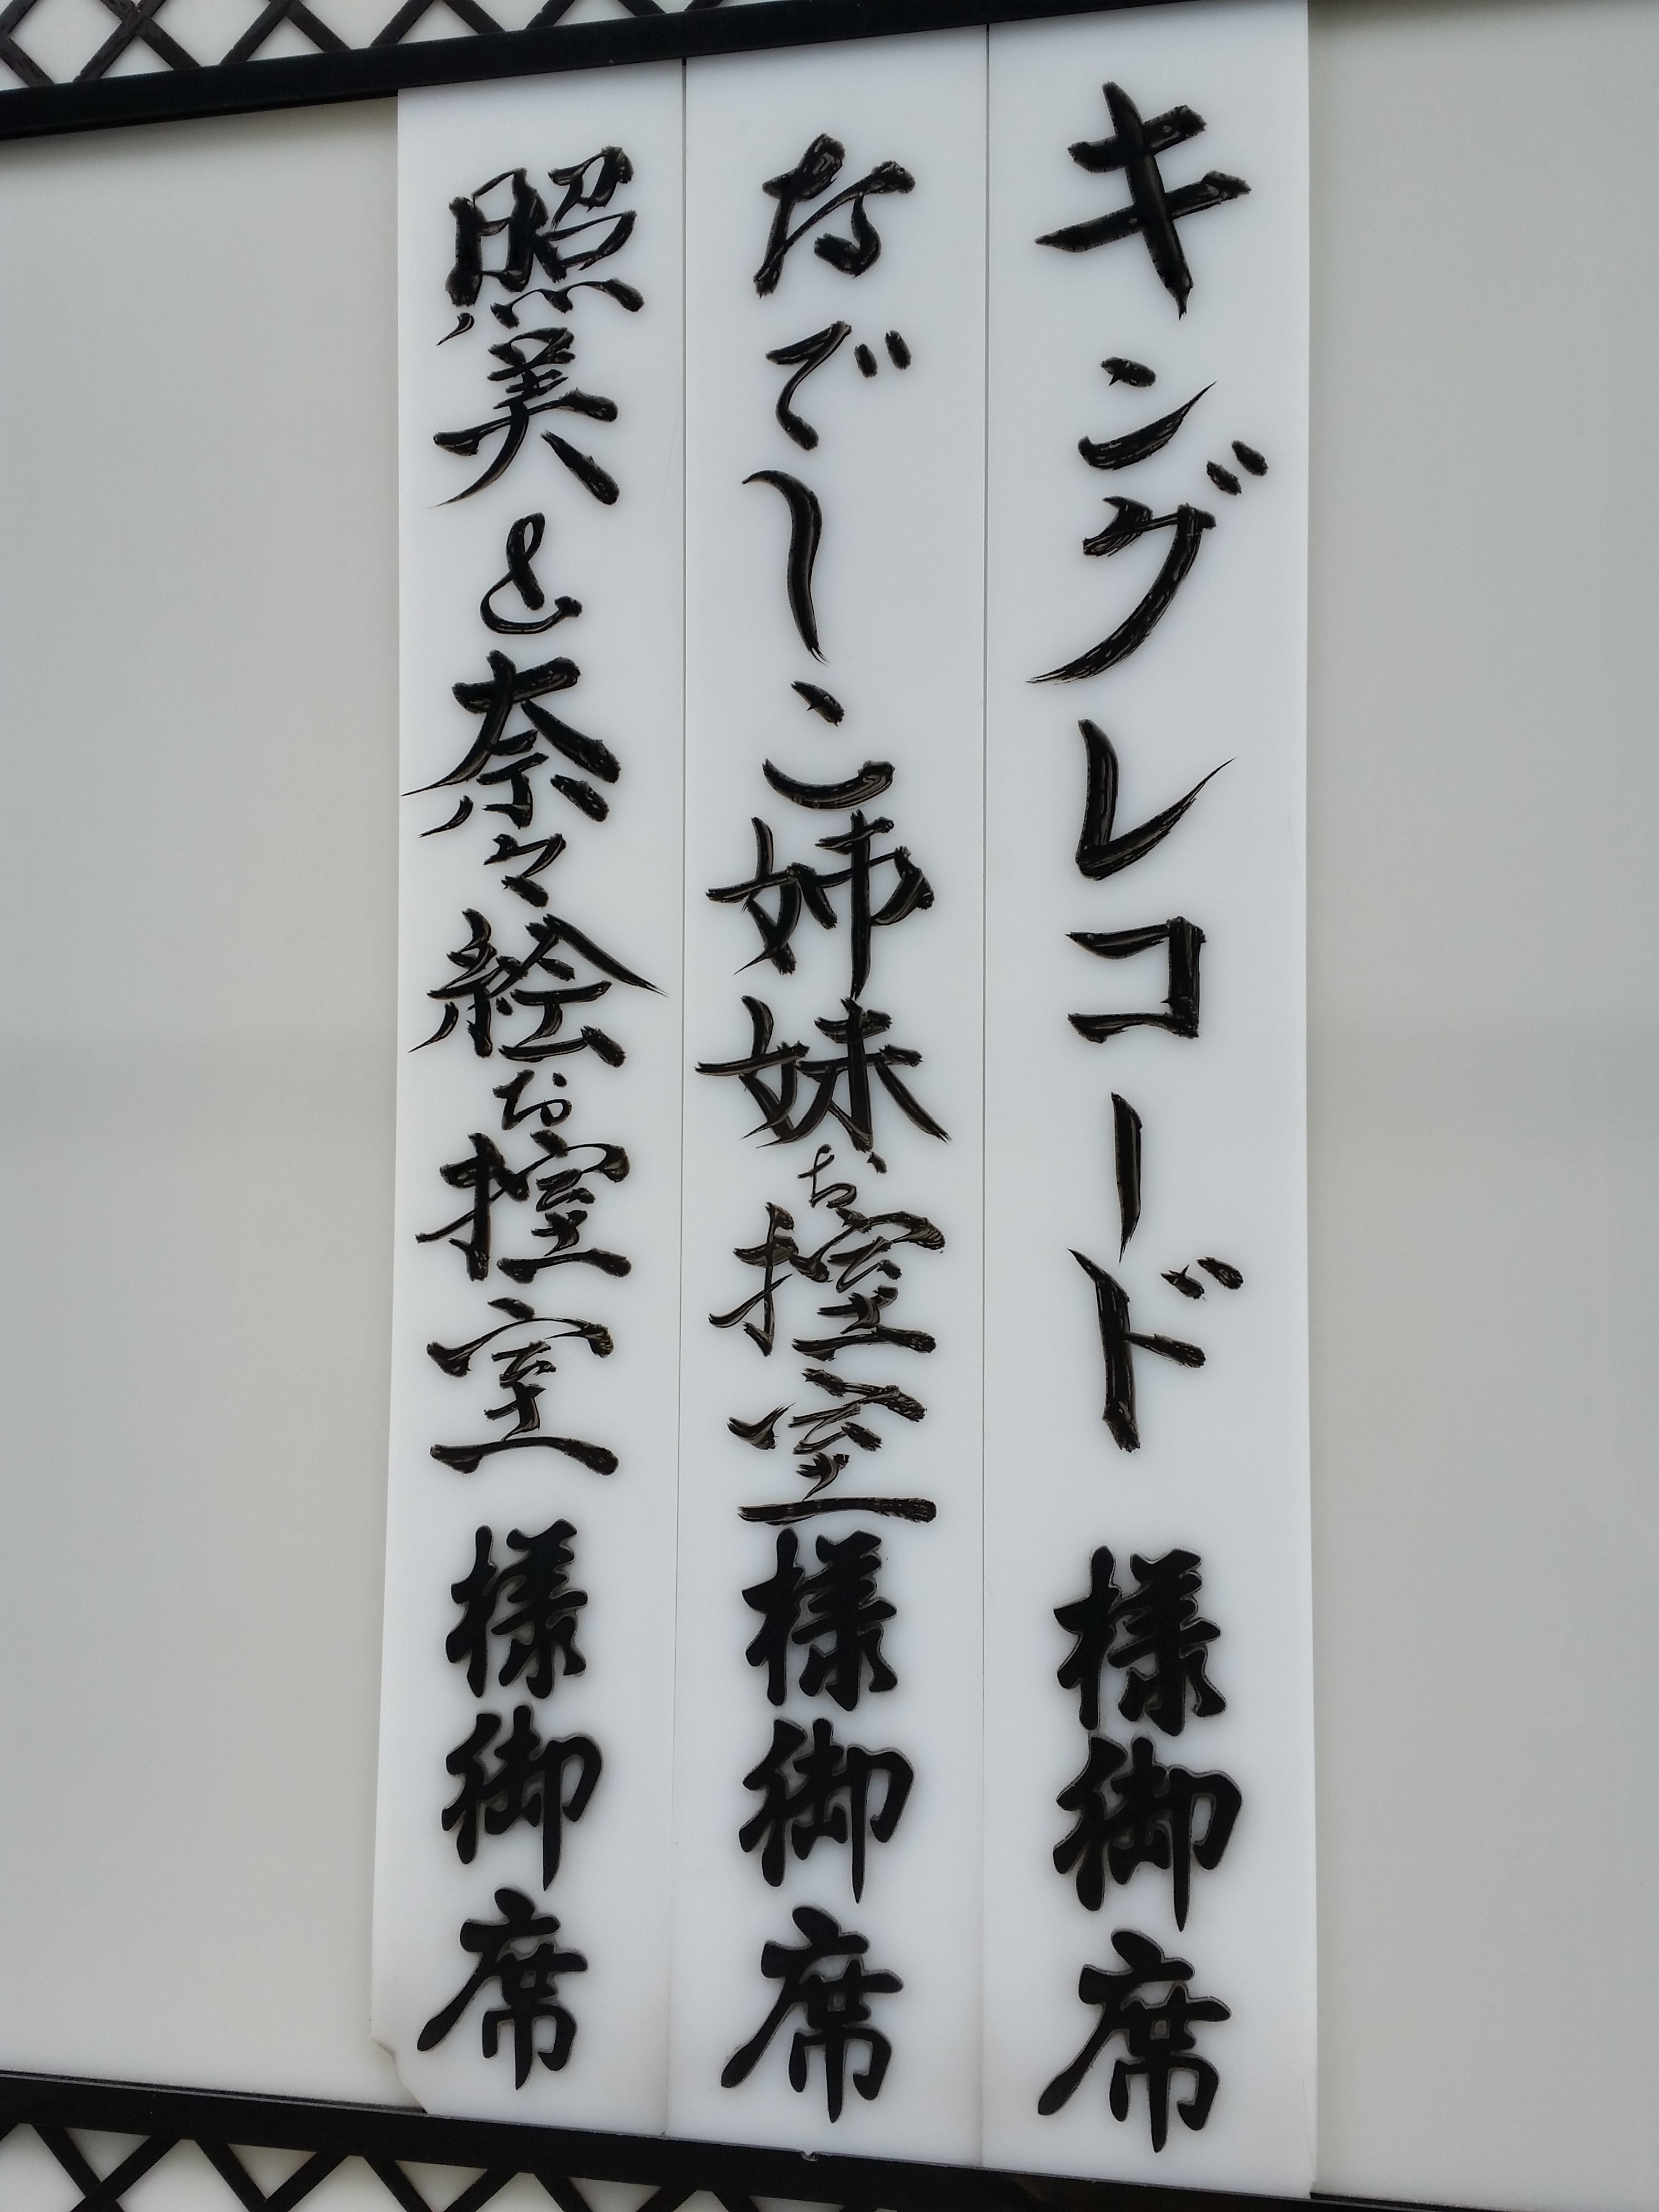 キングレコード様御席
なでしこ姉妹お控室様御席
照美&奈々絵お控室様御席